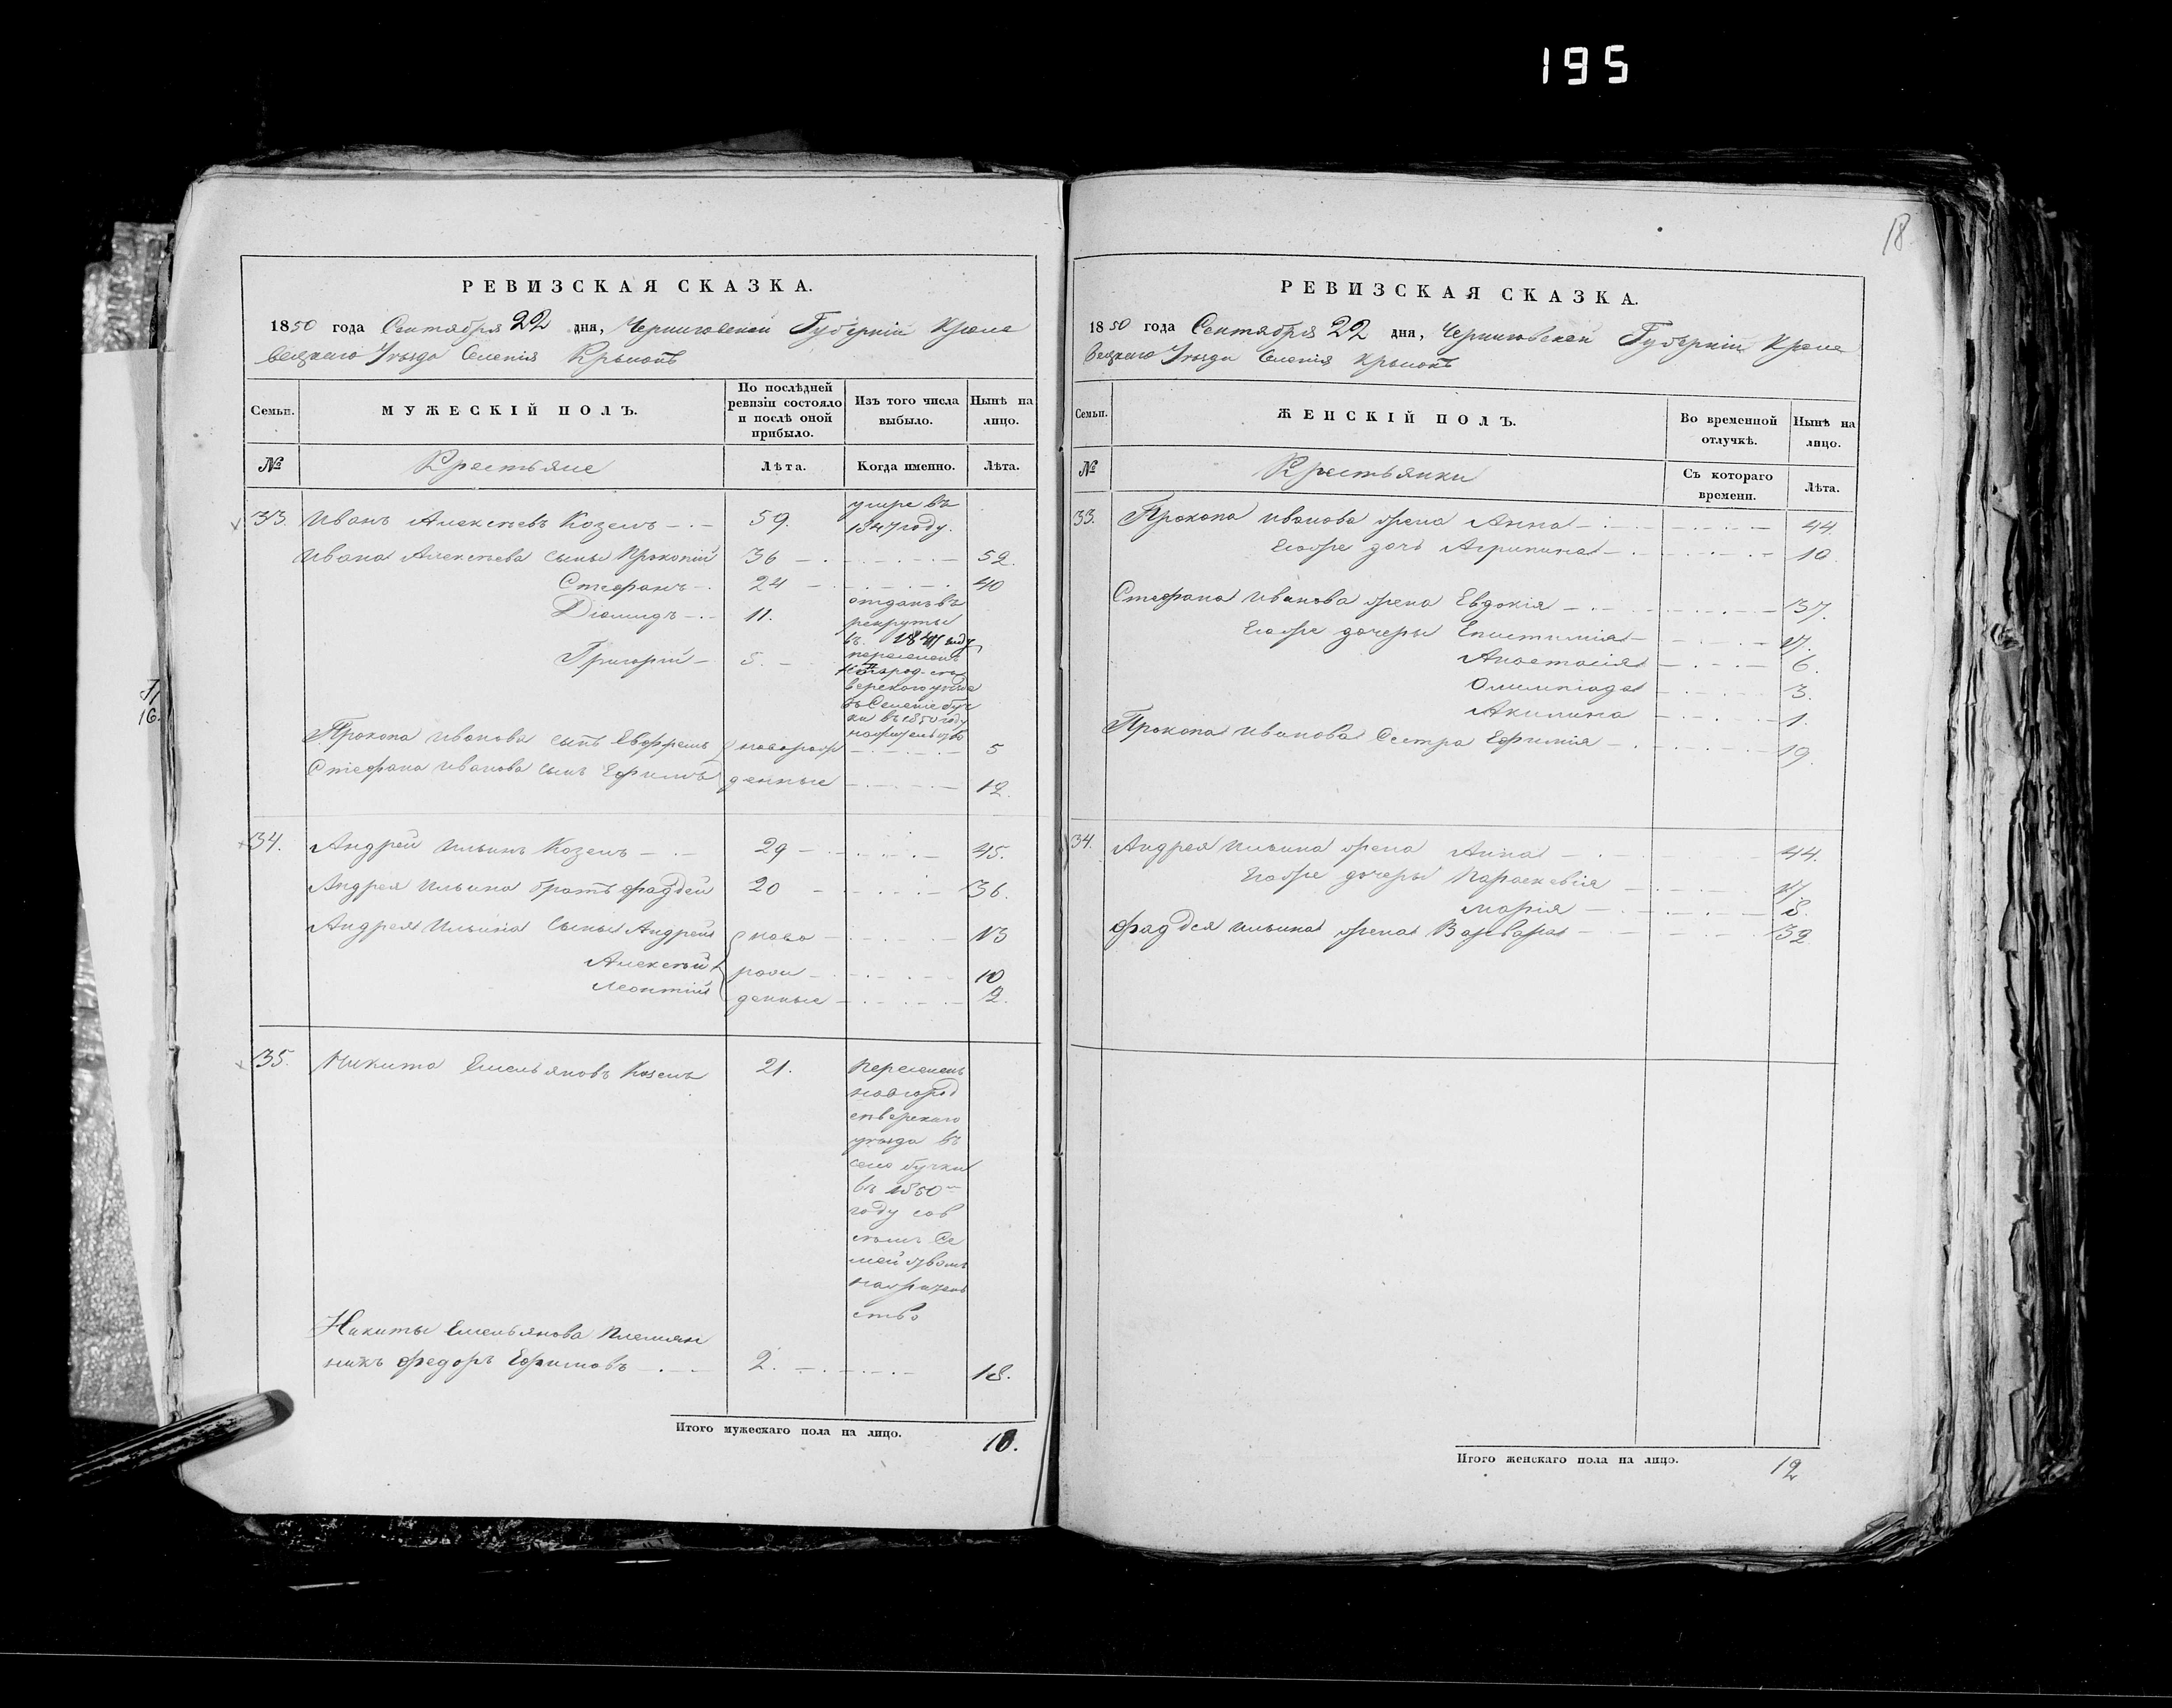 195
18
РЕВИЗСКАЯ СКАЗКА.
1850 года Сентября 22 дня, Черниговской Губерніи Кроле
вецкаго Уезда Селенія
Семьи.
МУЖЕСКІЙ ПОЛЪ.
По послѣдней ревизіи состояло и послѣ оной прибыло.
Изъ того числа выбыло.
Нынѣ на лицо.
№
Крестьяне
Лѣта.
Когда именно.
Лѣта.
33. Иванъ Алексѣевъ Козелъ 59. умре въ
1847 году.
Ивана Алексѣева сыны Прокопій 36 52.
Стефанъ 24 40
Діомидъ 11. отданъ въ
рекруты
въ году
Григорій 5. переселенъ
верского уезда
въ Селеніе Буч
ки въ 1850 году
Прокопа Иванова сынъ Евфремъ новорож 5
Стефана Иванова сынъ Ефимъ денные 12.
34. Андрей Ильинъ Козелъ 29 45.
Андрея Ильина братъ Фаддей 20 36.
Андрея Ильина сыны Андрей ново 13
Алексѣй рож 10
Леонтій денные 2.
35. Никита Емельяновъ Козелъ 21. Переселенъ
новгород
сѣверскаго
уезда въ
село бучки
въ 1850 м
году сов
сѣмъ Се
мействомъ
ство
Никиты Емельянова племян
никъ Федоръ Ефимовъ 2. 18.
Итого мужескаго пола на лицо. 10.
РЕВИЗСКАЯ СКАЗКА.
1850 года Сентября 22 дня, Черниговской Губерніи Кроле
вецкаго Уезда Селенія
Семьи.
ЖЕНСКІЙ ПОЛЪ.
Во временной отлучкѣ.
Нынѣ на лицо.
№
Крестьянки
Съ котораго времени.
Лѣта.
33. Прокопа Иванова жена Анна 44.
Егоже дочь Агрипина 10.
Стефана Иванова жена Евдокія 37.
Егоже дочеры Епистимія 17.
Анастасія 6.
Олимпіада 3.
Акилина 1.
Прокопа Иванова Сестра Ефимія 19.
34. Андрея Ильина жена Анна 44.
Егоже дочеры Параскевія 17.
Марія 8.
Фаддея Ильина жена Варвара 32
Итого женскаго пола на лицо. 12